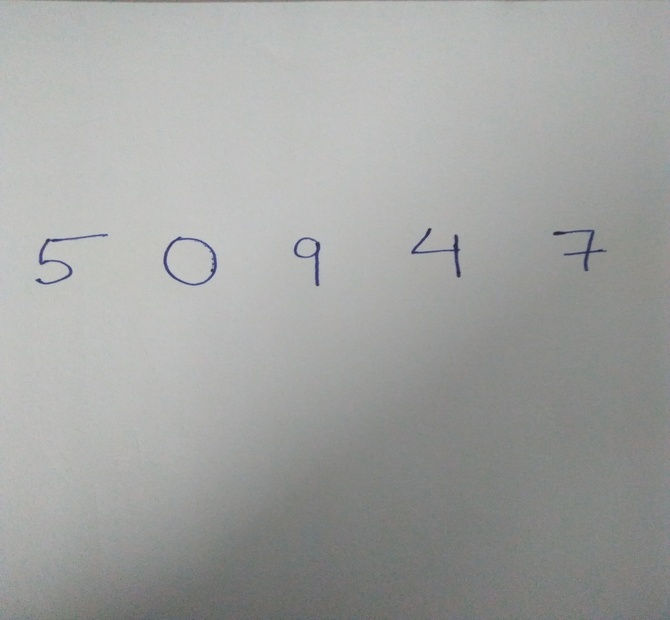 5 0 9 4 7